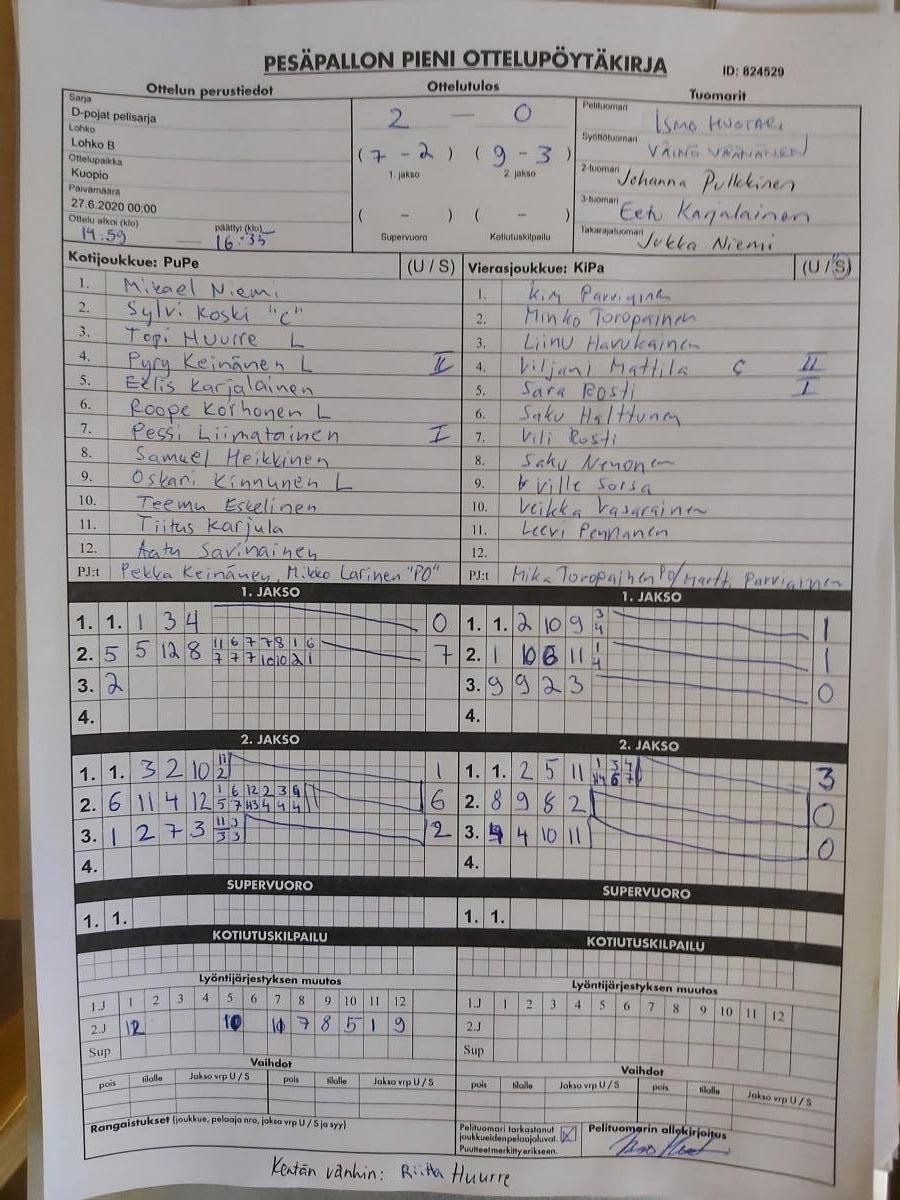 PESÄPALLON PIENI OTTELUPÖYTÄKIRJA
ID: 824529
Ottelun perustiedot
Sarja
D-pojat pelisarja
Lohko
Lohko B
Ottelupaikka
Kuopio
Päivämäärä
27.6.2020 00:00
Ottelu alkoi (klo) päättyi (klo)
14:59 — 16:35
Ottelutulos
2 — 0
(7 - 2) (9 - 3)
1. jakso 2. jakso
( - ) ( - )
Supervuoro Kotiutuskilpailu
Tuomarit
Pelituomari ISMO HUOTARI
Syöttötuomari VÄINÖ VÄÄNÄNEN
2-tuomari Johanna Pulkkinen
3-tuomari Eetu Karjalainen
Takarajatuomari Jukka Niemi
Kotijoukkue: PuPe (U / S)
1. Mikael Niemi
2. Sylvi Koski "C"
3. Topi Huurre L
4. Pyry Keinänen L II
5. Eelis Karjalainen
6. Roope Korhonen L
7. Pessi Liimatainen I
8. Samuel Heikkinen
9. Oskari Kinnunen L
10. Teemu Eskelinen
11. Tiitus Karjula
12. Aatu Savinainen
PJ:t Pekka Keinänen, Mikko Larinen "PO"
Vierasjoukkue: KiPa (U / S)
1. Kim Parviainen
2. Minko Toropainen
3. Liinu Havukainen
4. Viljami Mattila C II
5. Sara Rosti I
6. Saku Halttunen
7. Vili Rosti
8. Saku Nenonen
9. Ville Sorsa
10. Veikka Vasarainen
11. Leevi Pennanen
12.
PJ:t Mika Toropainen PO/Martti Parviainen
1. JAKSO
1. 1. 1 3 4 0
2. 5 5 12 8 11 6 7 7 8 1 6 7
7 7 7 10 10 2 1
3. 2
4.
1. JAKSO
1. 1. 2 10 9 3 1
4
2. 1 10 6 11 1 1
4
3. 9 9 2 3 0
4.
2. JAKSO
1. 1. 3 2 10 11 1
2
2. 6 11 4 12 1 6 12 2 3 9 6
5 7 3 4 4
3. 1 2 7 3 11 3 2
3 3
4.
2. JAKSO
1. 1. 2 5 11 1 3 4 3
6 7
2. 8 9 8 2 0
3. 4 10 11 0
4.
SUPERVUORO
1. 1.
SUPERVUORO
1. 1.
KOTIUTUSKILPAILU
KOTIUTUSKILPAILU
Lyöntijärjestyksen muutos
1.J 1 2 3 4 5 6 7 8 9 10 11 12
2.J 12 10 7 8 5 1 9
Sup
Lyöntijärjestyksen muutos
1.J 1 2 3 4 5 6 7 8 9 10 11 12
2.J
Sup
Vaihdot
pois tilalle Jakso vrp U / S pois tilalle Jakso vrp U / S
Vaihdot
pois tilalle Jakso vrp U / S pois tilalle Jakso vrp U / S
Rangaistukset (joukkue, pelaaja nro, jakso vrp U / S ja syy)
Pelituomari tarkastanut
joukkueiden pelaajaluvat.
Puutteet merkitty erikseen.
Pelituomarin allekirjoitus
Kentän vanhin: Riitta Huurre